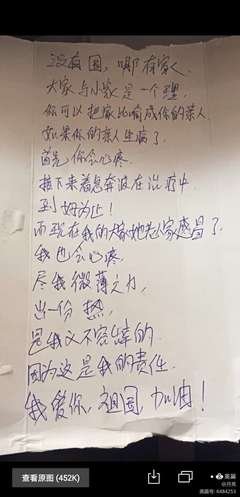 没有国，哪有家人
大家与小家是一个理
你可以把家比喻成你的亲人
如果你的亲人生病了
首先你会心疼
接下来着急奔波在治疗中
到好为止！
而现在我的大家她老人家感冒了
我也会心疼
尽我微薄之力，
出一份热，
是我义不容辞的
因为这是我的责任
我爱你，祖国，加油！
查看原图 (452K)
美篇
@许亮
美篇号:4484253